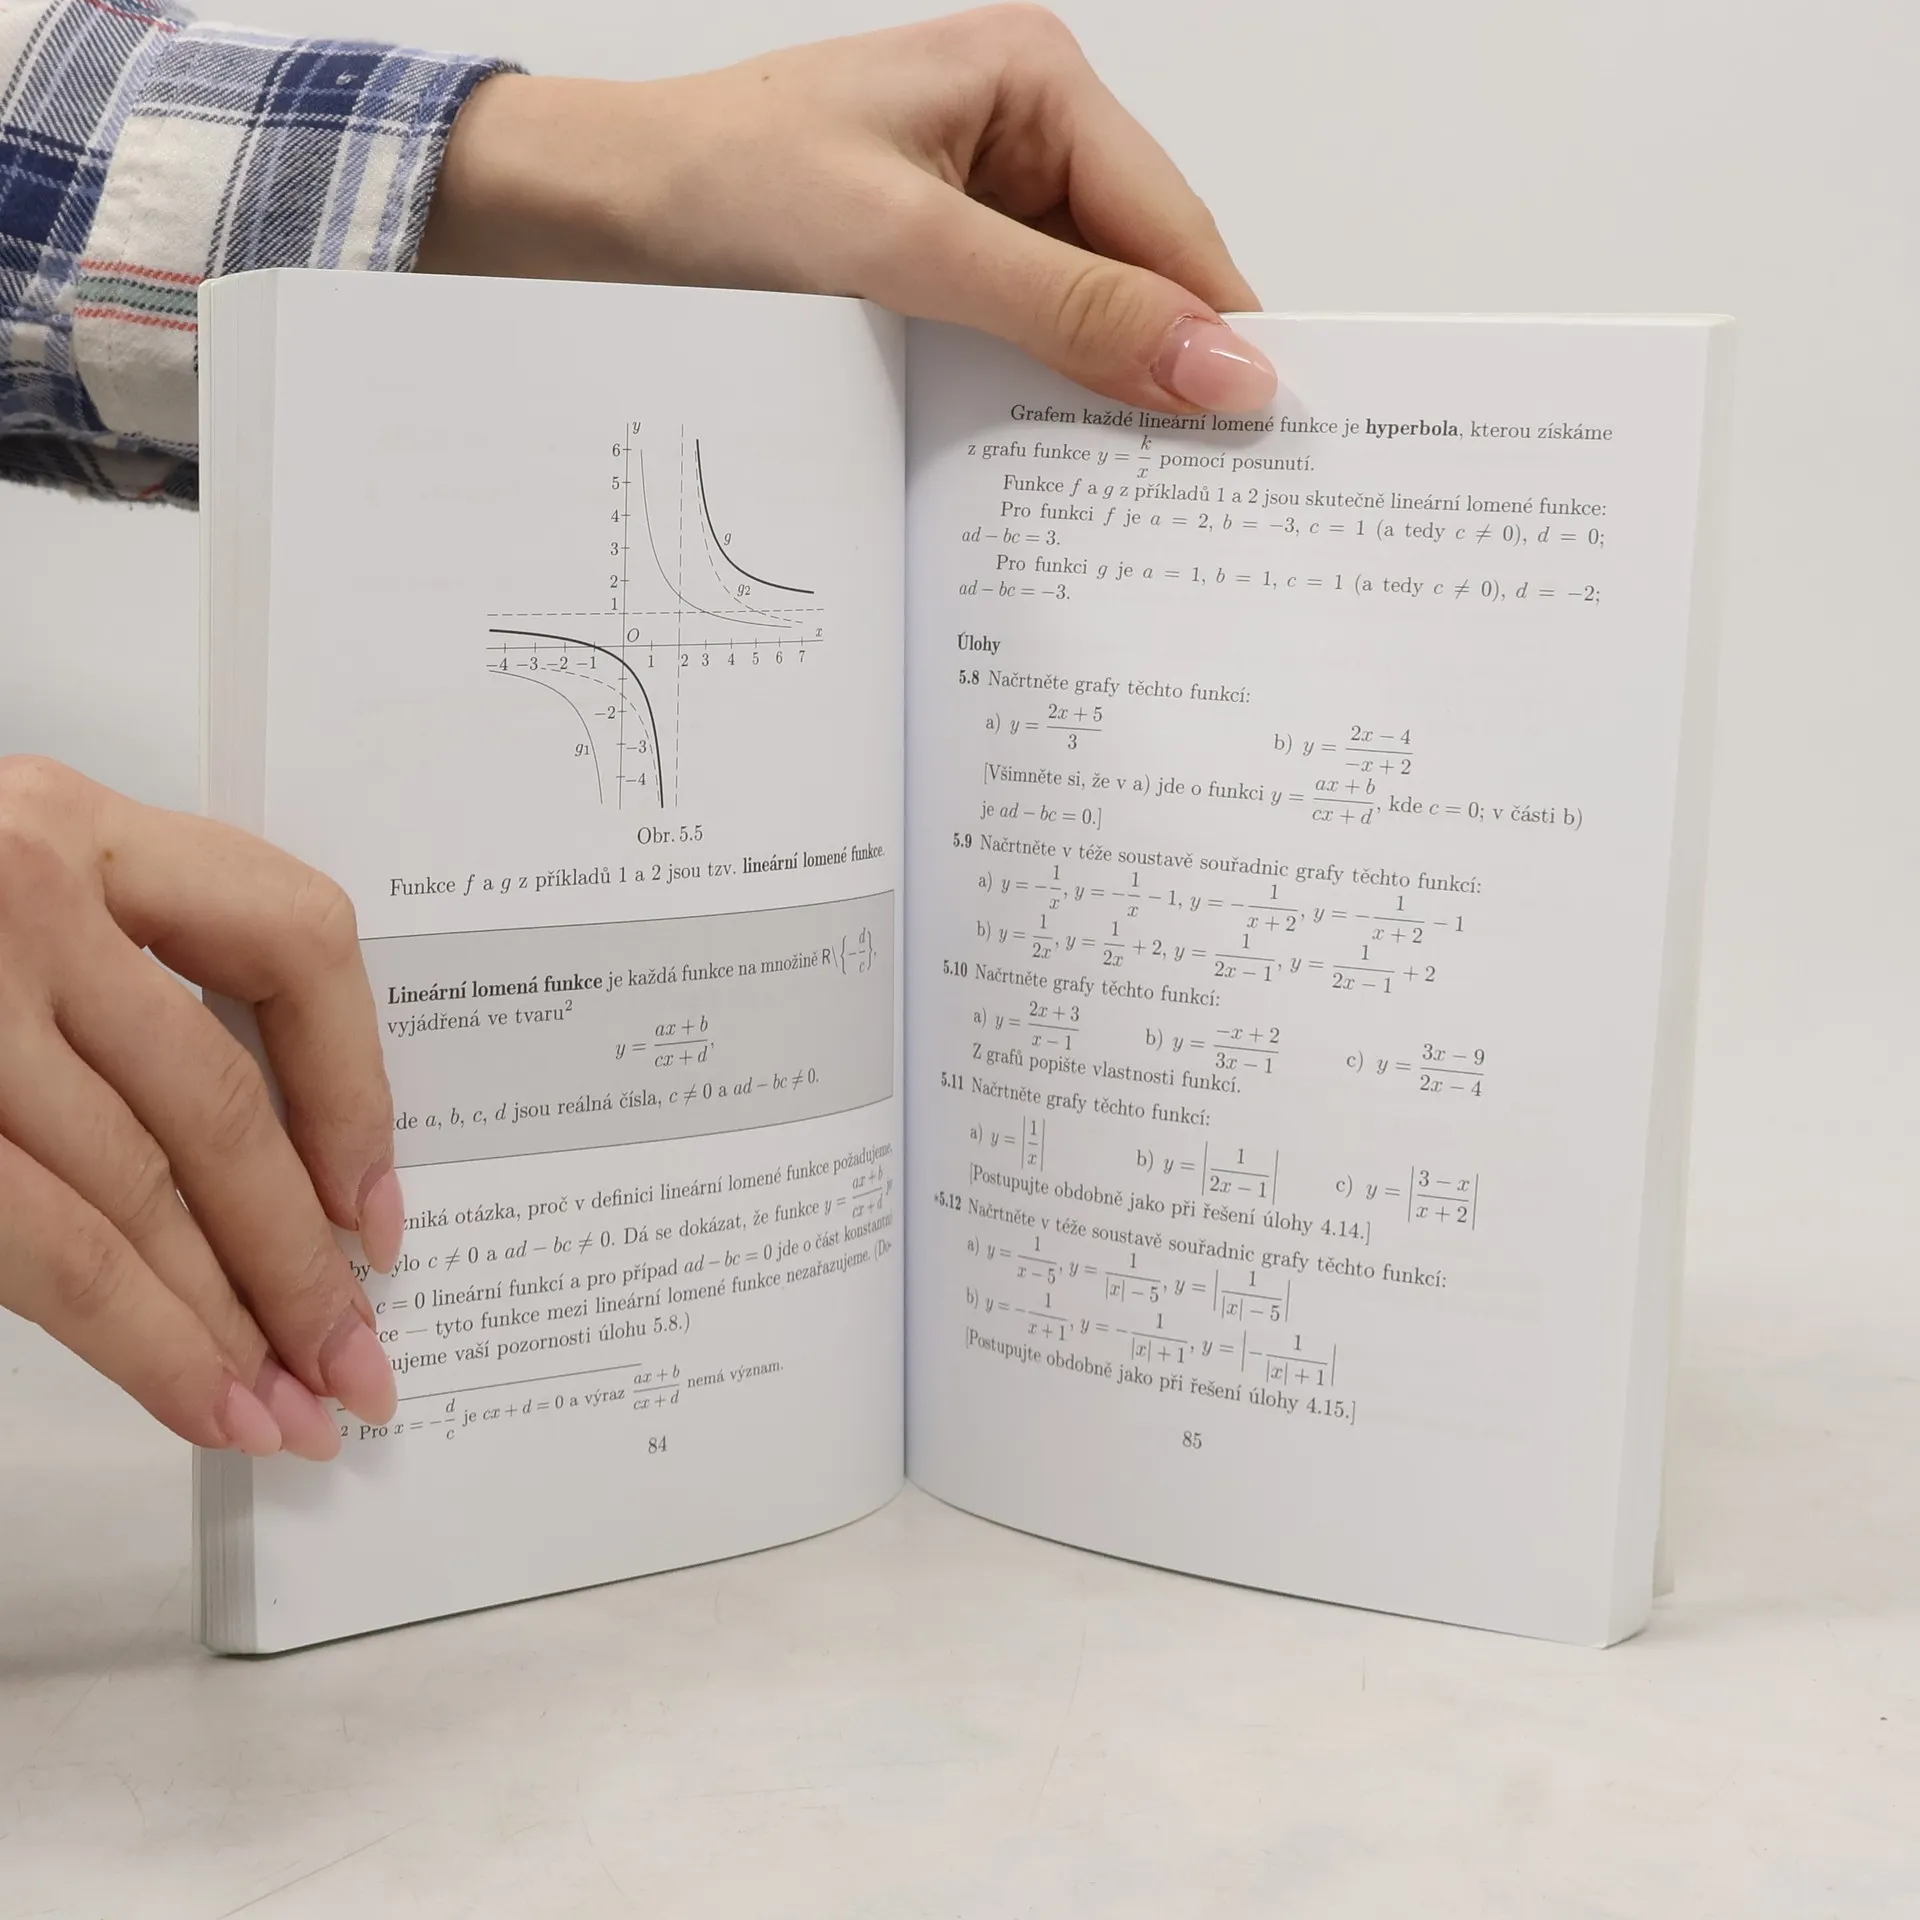 y
6
5
4
3
2
1
O
x
-4 -3 -2 -1 1 2 3 4 5 6 7
-2
-3
-4
g
g₂
g₁
Obr. 5.5
Funkce f a g z příkladů 1 a 2 jsou tzv. lineární lomené funkce.
Lineární lomená funkce je každá funkce na množině R\{-d/c},
vyjádřená ve tvaru²
y = (ax + b)/(cx + d),
de a, b, c, d jsou reálná čísla, c ≠ 0 a ad − bc ≠ 0.
zniká otázka, proč v definici lineární lomené funkce požadujeme,
by ylo c ≠ 0 a ad − bc ≠ 0. Dá se dokázat, že funkce y = (ax + b)/(cx + d)
c = 0 lineární funkcí a pro případ ad − bc = 0 jde o část konstantní
ce — tyto funkce mezi lineární lomené funkce nezařazujeme. (Do-
ujeme vaší pozornosti úlohu 5.8.)
² Pro x = −d/c je cx + d = 0 a výraz (ax + b)/(cx + d) nemá význam.
84
Grafem každé lineární lomené funkce je hyperbola, kterou získáme
z grafu funkce y = k/x pomocí posunutí.
Funkce f a g z příkladů 1 a 2 jsou skutečně lineární lomené funkce:
Pro funkci f je a = 2, b = −3, c = 1 (a tedy c ≠ 0), d = 0;
ad − bc = 3.
Pro funkci g je a = 1, b = 1, c = 1 (a tedy c ≠ 0), d = −2;
ad − bc = −3.
Úlohy
5.8 Načrtněte grafy těchto funkcí:
a) y = (2x + 5)/3 b) y = (2x − 4)/(−x + 2)
[Všimněte si, že v a) jde o funkci y = (ax + b)/(cx + d), kde c = 0; v části b)
je ad − bc = 0.]
5.9 Načrtněte v téže soustavě souřadnic grafy těchto funkcí:
a) y = −1/x, y = −1/x − 1, y = −1/(x + 2), y = −1/(x + 2) − 1
b) y = 1/(2x), y = 1/(2x) + 2, y = 1/(2x − 1), y = 1/(2x − 1) + 2
5.10 Načrtněte grafy těchto funkcí:
a) y = (2x + 3)/(x − 1) b) y = (−x + 2)/(3x − 1) c) y = (3x − 9)/(2x − 4)
Z grafů popište vlastnosti funkcí.
5.11 Načrtněte grafy těchto funkcí:
a) y = |1/x| b) y = |1/(2x − 1)| c) y = |(3 − x)/(x + 2)|
[Postupujte obdobně jako při řešení úlohy 4.14.]
*5.12 Načrtněte v téže soustavě souřadnic grafy těchto funkcí:
a) y = 1/(x − 5), y = 1/(|x| − 5), y = |1/(|x| − 5)|
b) y = −1/(x + 1), y = −1/(|x| + 1), y = |−1/(|x| + 1)|
[Postupujte obdobně jako při řešení úlohy 4.15.]
85